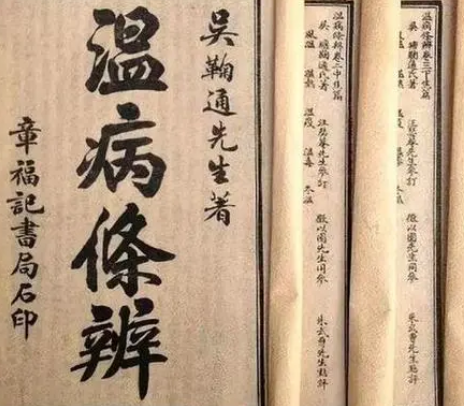 吳鞠通先生著
溫病條辨
章福記書局石印
溫病條辨卷二中焦篇
吳瑭鞠通氏著
汪瑟菴先生參訂
徵以園先生同參
朱武曹先生點評
風溫
溫熱
溫疫
溫毒
冬溫
溫病條辨卷三下焦篇
吳瑭鞠通氏著
汪瑟菴先生參訂
徵以園先生同參
朱武曹先生點評